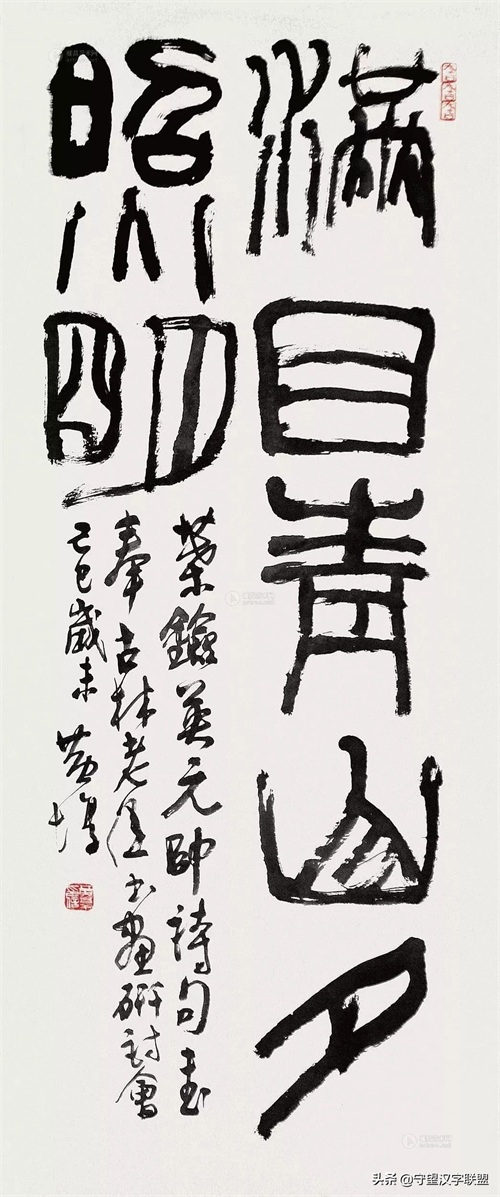 滿目青山夕
照明
葉鐱英元帥詩句書
奉吉林老年書畫研討會
己巳歲末 黃惇
头条 @守望汉字联盟